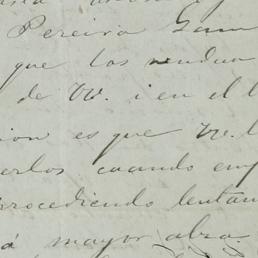 Pereira Gam
que los vendan
de VV. i en el l
ion es que VV. l
erlos cuando emp
rocediendo lentam
á mayor abra